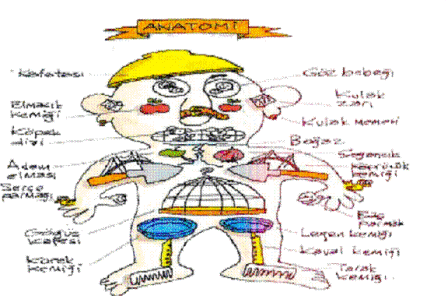 ANATOMİ
Kafatası
Göz bebeği
Elmacık kemiği
Kulak zarı
Köpek dişi
Kulak memesi
Boğaz
Adem elması
Köprücük kemiği
Serçe parmağı
Baş parmak
Göğüs kafesi
Leğen kemiği
Kaval kemiği
Tarak kemiği